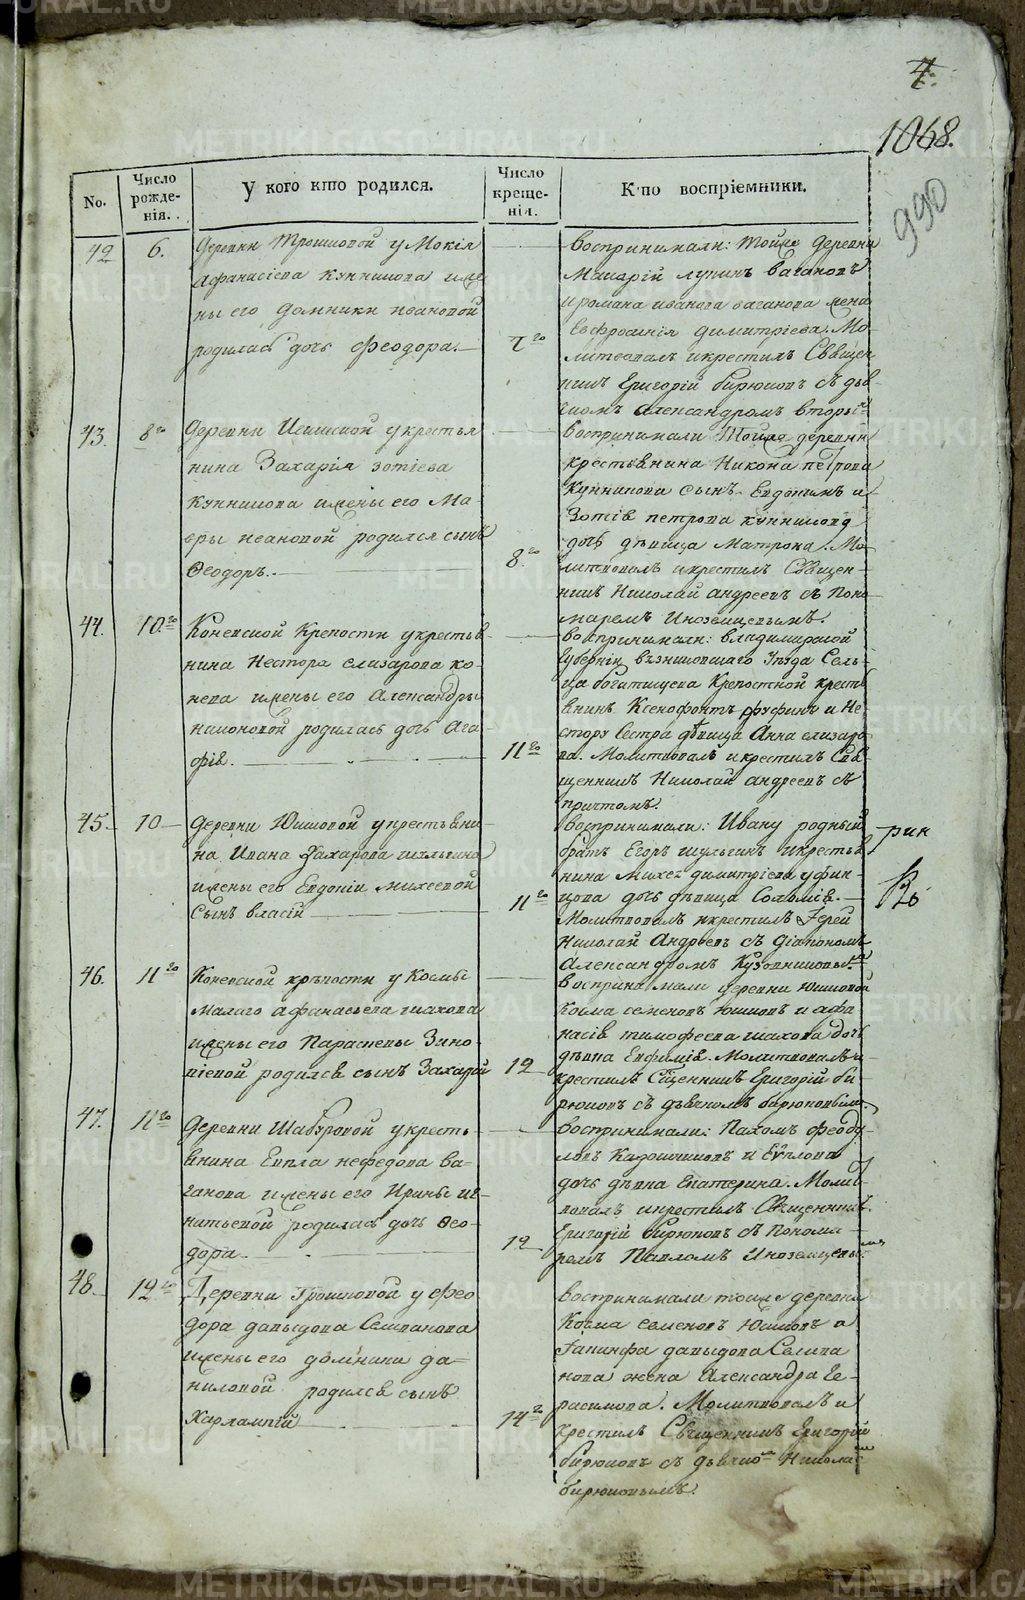 4.
1068.
990
No.
Число рожде-нія.
У кого кто родился.
Число креще-нія.
Кто воспріемники.
42
6.
Деревни Трошковой у Мокія
Афанасіева
ны его Домники Ивановой
родилась дочь Феодора.
7го
Воспринимали: Тойже деревни
Макарій Лукинъ Вагановъ
и Романа Иванова Ваганова жена
Евфросинія Димитріева. Мо-
литвовалъ и крестилъ Священ-
никъ Григорій Бирюковъ съ дья-
комъ Александромъ
43.
8го
Деревни
у крестья
нина Захарія Зотіева
и жены его Ма-
вры Ивановой родился сынъ
Феодоръ.
8го
Воспринимали Тойже деревни
крестьянина Никона Петрова
сынъ Евдокимъ и
Зотія Петрова
дочь дѣвица Матрона. Мо-
литвовалъ и крестилъ Священ-
никъ Николай Андреевъ съ Поно-
маремъ Иноземцевымъ.
44.
10го
Коневской Крепости у крестья
нина Нестора Елизарова Ко-
нева и жены его Александры
родилась дочь Ага-
фія.
11го
Воспринимали: Владимирской
Губерніи
уѣзда Сель-
ца Богатищева Крепостной кресть
янинъ Ксенофонтъ Руфинъ и Не-
стору сестра дѣвица Анна Елизаро
ва. Молитвовалъ и крестилъ Свя-
щенникъ Николай Андреевъ съ
причтомъ.
45.
10
Деревни Юшковой у крестьяни-
на Ивана Захарова Шульгина
и жены его Евдокіи Михеевой
сынъ Власій
11го
Воспринимали: Ивану родный
братъ Егоръ Шульгинъ и крестья
нина Михея Димитріева Уфин-
цова дочь дѣвица Соломія.
Молитвовалъ и крестилъ Іерей
Николай Андреевъ съ Діакономъ
Александромъ
46.
11го
Коневской крѣпости у Космы
Малаго Афанасьева Шахова
и жены его Параскевы Зино-
віевой родился сынъ Захарій
12
Воспринимали деревни Юшковой
Косма Семеновъ Юшковъ и Афа
насія Тимофеева Шахова дочь
дѣвка Евфимія. Молитвовалъ и
крестилъ Священникъ Григорій Би-
рюковъ съ дьячкомъ Бирюковымъ.
47.
11го
Деревни Шабуровой у кресть
янина Евпла Нефедова Ва-
ганова и жены его Ирины Иг-
натьевой родилась дочь Фео-
дора.
12
Воспринимали: Пахомъ Феоду-
ловъ Калашниковъ и Евплова
дочь дѣвка Екатерина. Молит
вовалъ и крестилъ Священникъ
Григорій Бирюковъ съ Понома-
ремъ Павломъ Иноземцевымъ
48.
12го
Деревни Трошковой у Фео
дора Давыдова Селиванова
и жены его Домники Да-
ниловой родился сынъ
Харлампій
14го
Воспринимали тойже деревни
Косма Семеновъ Юшковъ и
Іакинфа Давыдова Селива
нова жена Александра Ге-
расимова. Молитвовалъ и
крестилъ Священникъ Григорій
Бирюковъ съ дьячкомъ
Бирюковымъ.
METRIKI.GASO-URAL.RU